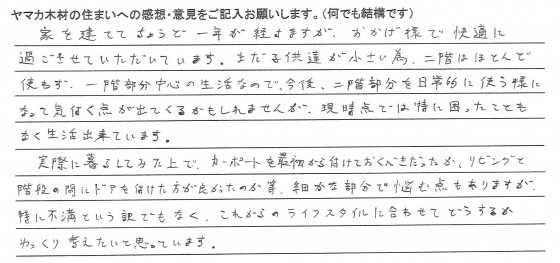 ヤマカ木材の住まいへの感想・意見をご記入お願いします。(何でも結構です)
家を建ててちょうど一年が経ちますが、おかげ様で快適に
過ごさせていただいています。まだ子供達が小さい為、二階はほとんど
使わず、一階部分中心の生活なので、今後、二階部分を日常的に使う様に
なって気付く点が出てくるかもしれませんが、現時点では特に困ったことも
なく生活出来ています。
実際に暮らしてみた上で、カーポートを最初から付けておくべきだったか、リビングと
階段の間にドアを付けた方が良かったのか等、細かな部分で悩む点もありますが、
特に不満という訳でもなく、これからのライフスタイルに合わせてどうするか
ゆっくり考えたいと思っています。